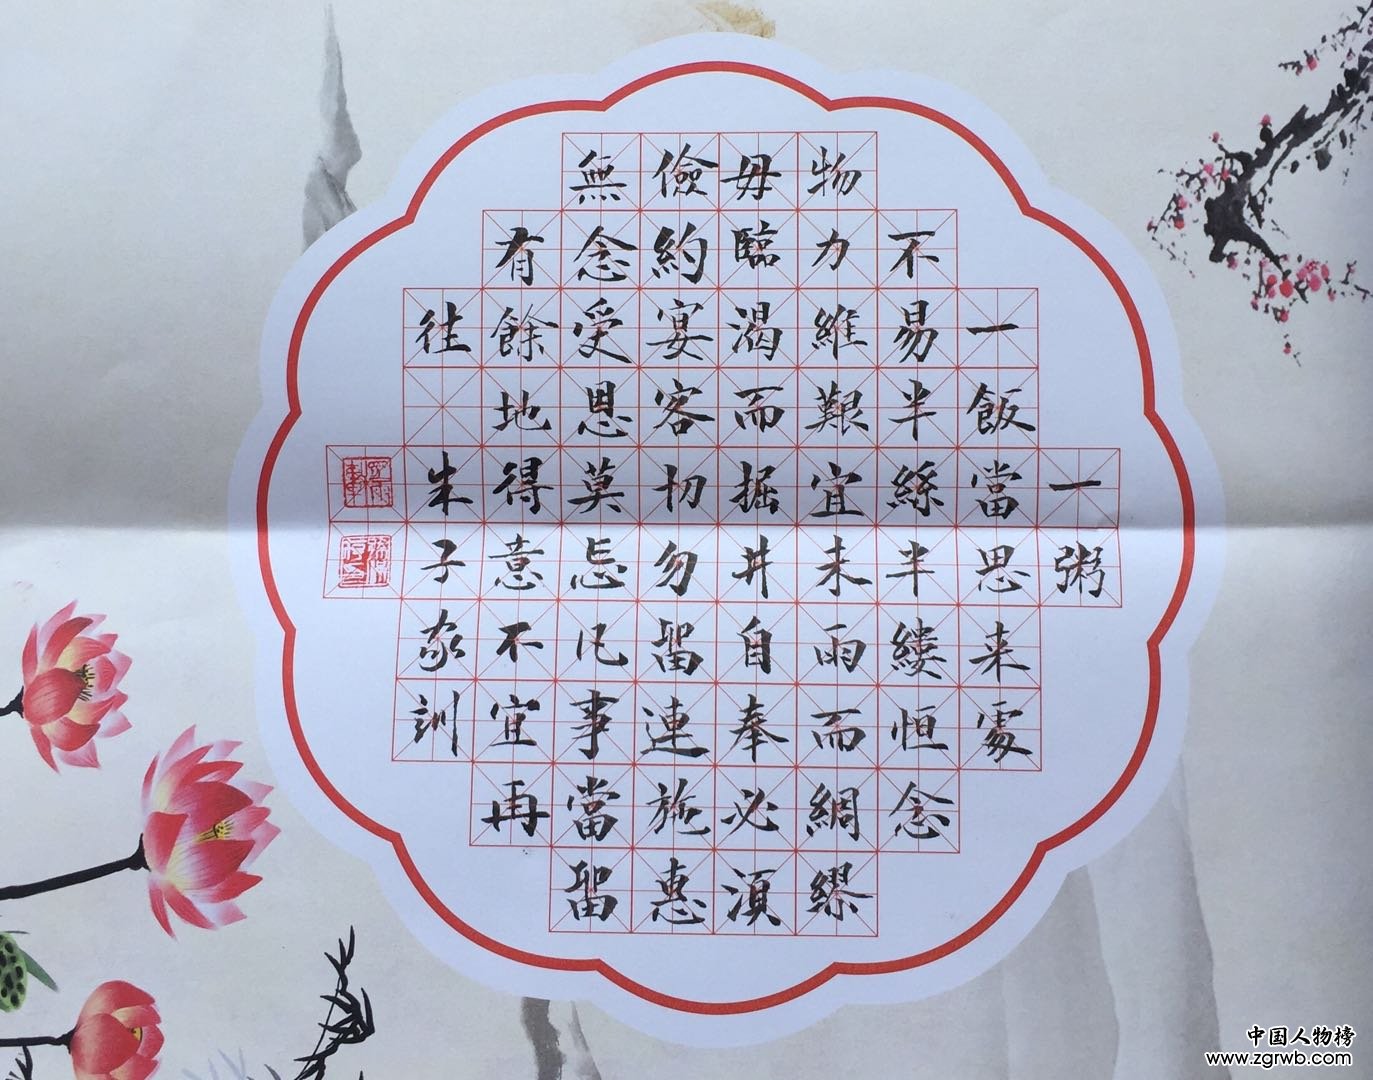 一粥
一飯當思来處
不易半絲半縷恒念
物力維艱宜未雨而綢繆
毋臨渴而掘井自奉必須
儉約宴客切勿留連施惠
無念受恩莫忘凡事當留
有餘地得意不宜再
往
朱子家訓
中国人物榜
www.zgrwb.com